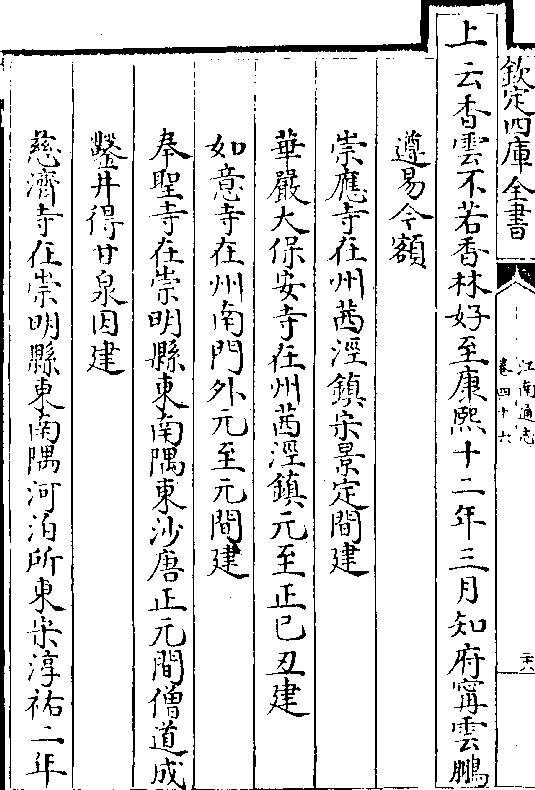 欽定四庫全書
江南通志
卷四十六
上云香雲不若香林好至康熙十二年三月知府寗雲鵬
遵易今額
崇應寺在州茜涇鎮宋景定間建
華嚴大保安寺在州茜涇鎮元至正己丑建
如意寺在州南門外元至元間建
奉聖寺在崇明縣東南隅東沙唐正元間僧道成
鑿井得甘泉因建
慈濟寺在崇明縣東南隅河泊所東宋淳祐二年